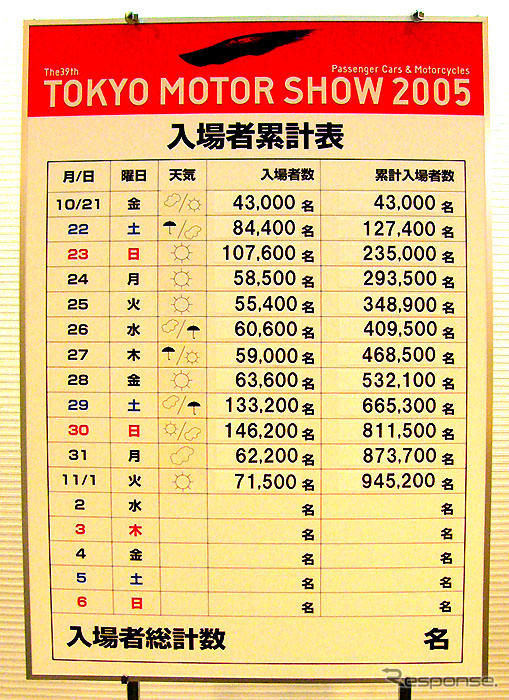 The39th
Passenger Cars & Motorcycles
TOKYO MOTOR SHOW 2005
入場者累計表
月/日 曜日 天気 入場者数 累計入場者数
10/21 金 43,000 名 43,000 名
22 土 84,400 名 127,400 名
23 日 107,600 名 235,000 名
24 月 58,500 名 293,500 名
25 火 55,400 名 348,900 名
26 水 60,600 名 409,500 名
27 木 59,000 名 468,500 名
28 金 63,600 名 532,100 名
29 土 133,200 名 665,300 名
30 日 146,200 名 811,500 名
31 月 62,200 名 873,700 名
11/1 火 71,500 名 945,200 名
2 水 名 名
3 木 名 名
4 金 名 名
5 土 名 名
6 日 名 名
入場者総計数 名
Response.